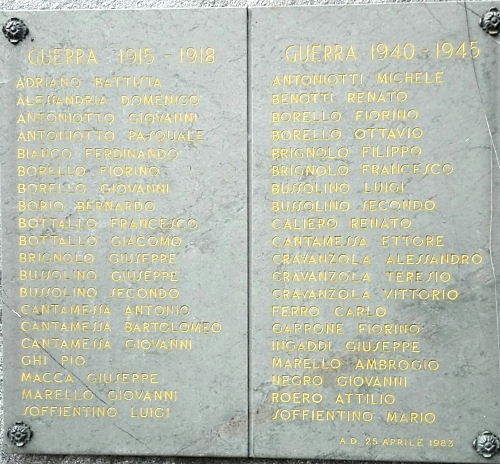 GUERRA 1915 - 1918
ADRIANO BATTISTA
ALESSANDRIA DOMENICO
ANTONIOTTO GIOVANNI
ANTONIOTTO PASQUALE
BIANCO FERDINANDO
BORELLO FIORINO
BORELLO GIOVANNI
BORIO BERNARDO
BOTTALLO FRANCESCO
BOTTALLO GIACOMO
BRIGNOLO GIUSEPPE
BUSSOLINO GIUSEPPE
BUSSOLINO SECONDO
CANTAMESSA ANTONIO
CANTAMESSA BARTOLOMEO
CANTAMESSA GIOVANNI
GHI PIO
MACCA GIUSEPPE
MARELLO GIOVANNI
SOFFIENTINO LUIGI
GUERRA 1940 - 1945
ANTONIOTTI MICHELE
BENOTTI RENATO
BORELLO FIORINO
BORELLO OTTAVIO
BRIGNOLO FILIPPO
BRIGNOLO FRANCESCO
BUSSOLINO LUIGI
BUSSOLINO SECONDO
CALIERO RENATO
CANTAMESSA ETTORE
CRAVANZOLA ALESSANDRO
CRAVANZOLA TERESIO
CRAVANZOLA VITTORIO
FERRO CARLO
GAPPONE FIORINO
INGADDI GIUSEPPE
MARELLO AMBROGIO
NEGRO GIOVANNI
ROERO ATTILIO
SOFFIENTINO MARIO
A.D. 25 APRILE 1983